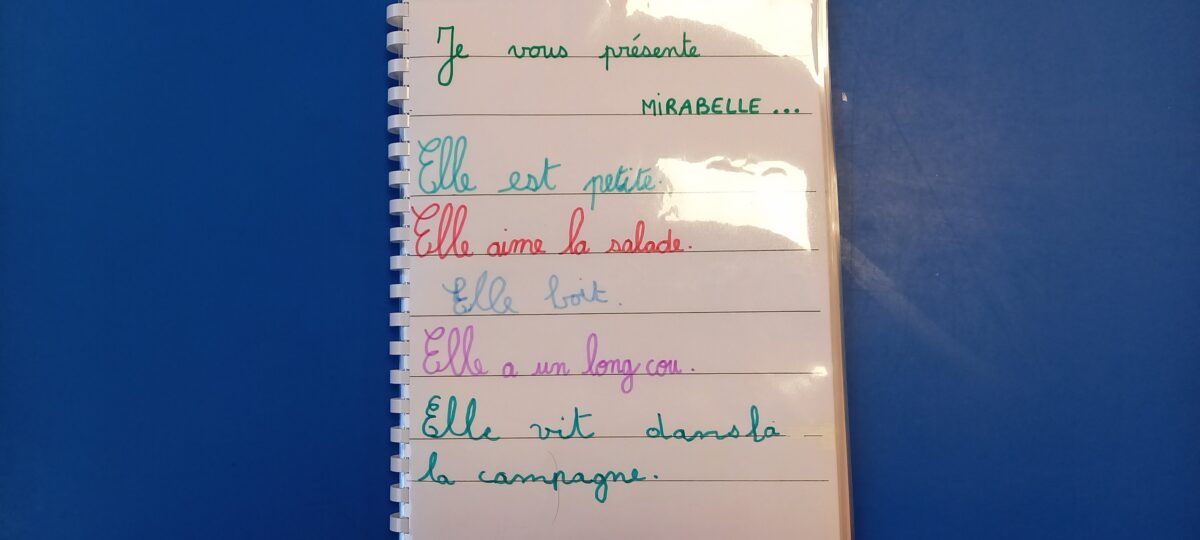 Je vous présente
MIRABELLE...
Elle est petite.
Elle aime la salade.
Elle boit.
Elle a un long cou.
Elle vit dans la
la campagne.